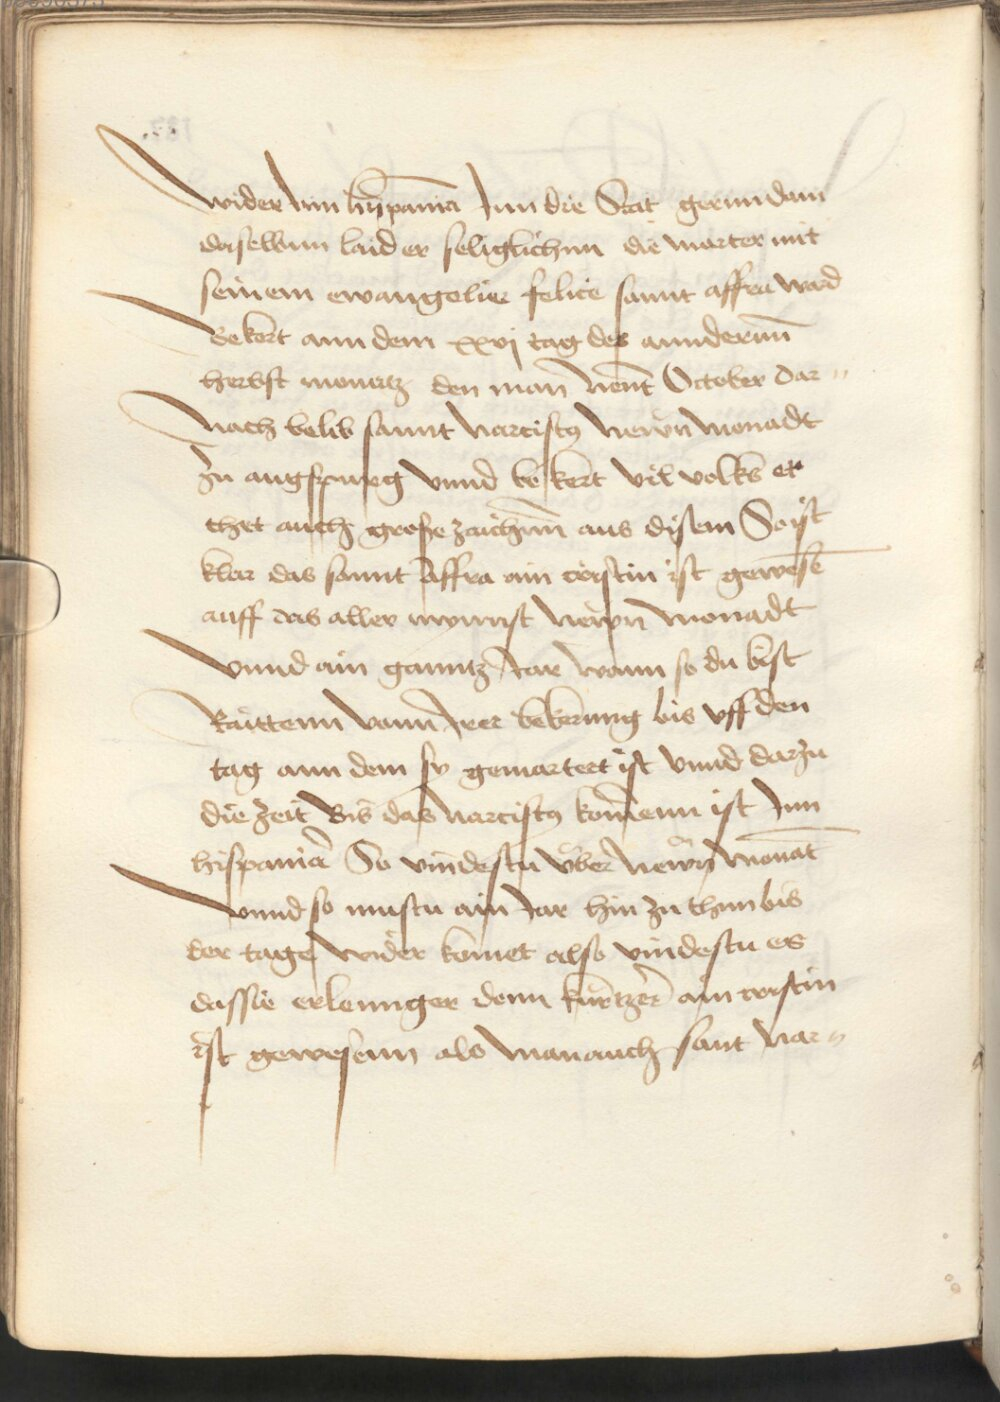 wider Inn hyspania Jnn die Stat gerundam
daselbnn laid er seliglichnn die marter mit
seinem ewangelier felice sannt affra ward
Bekert ann dem xxvj tag des anndernn
herbst monetz den man Nent October dar„
Nach belib sannt Narcisus Newn monadt
Zu augspurg vnnd bekert vil volks er
thet auch grosse zaichnn aus disem So ist
klar das sannt Affra ain cristin ist gewesē
auff das aller mynnst Newn monadt
vnnd ain ganntz Jar wann so du bist
Raittenn vonn Jrer bekerung bis vff den
tag ann dem sy gemartert ist vnnd darzu
die zeit Bis das Narcisus komenn ist Jnn
hispania So vindestu vber Newn monat
vnnd so mustu ain Jar hin zu thun bis
der tage wider komet also vindestu es
das sie erlennger denn kurtzer ain cristin
ist gewesenn als man auch sant Nar„